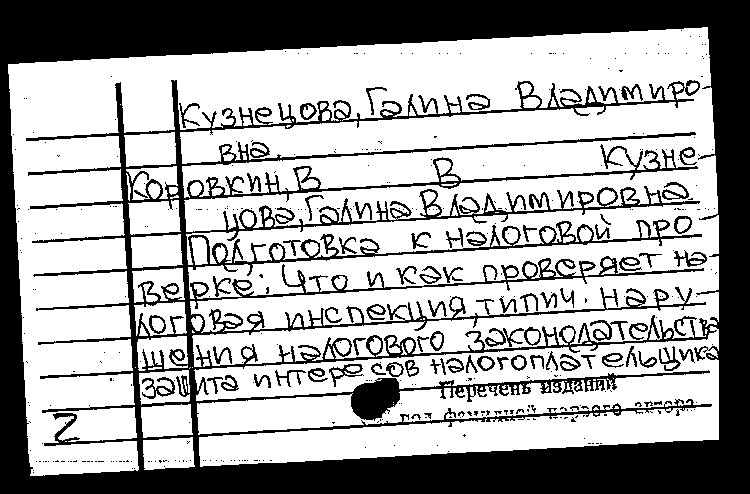 Кузнецова, Галина Владимиро-
вна.
Коровкин, В В Кузне-
цова, Галина Владимировна
Подготовка к налоговой про-
верке: Что и как проверяет на-
логовая инспекция, типич. нару-
шения налогового законодательства
защита интересов налогоплательщика
Перечень изданий
под фамилией первого автора
2